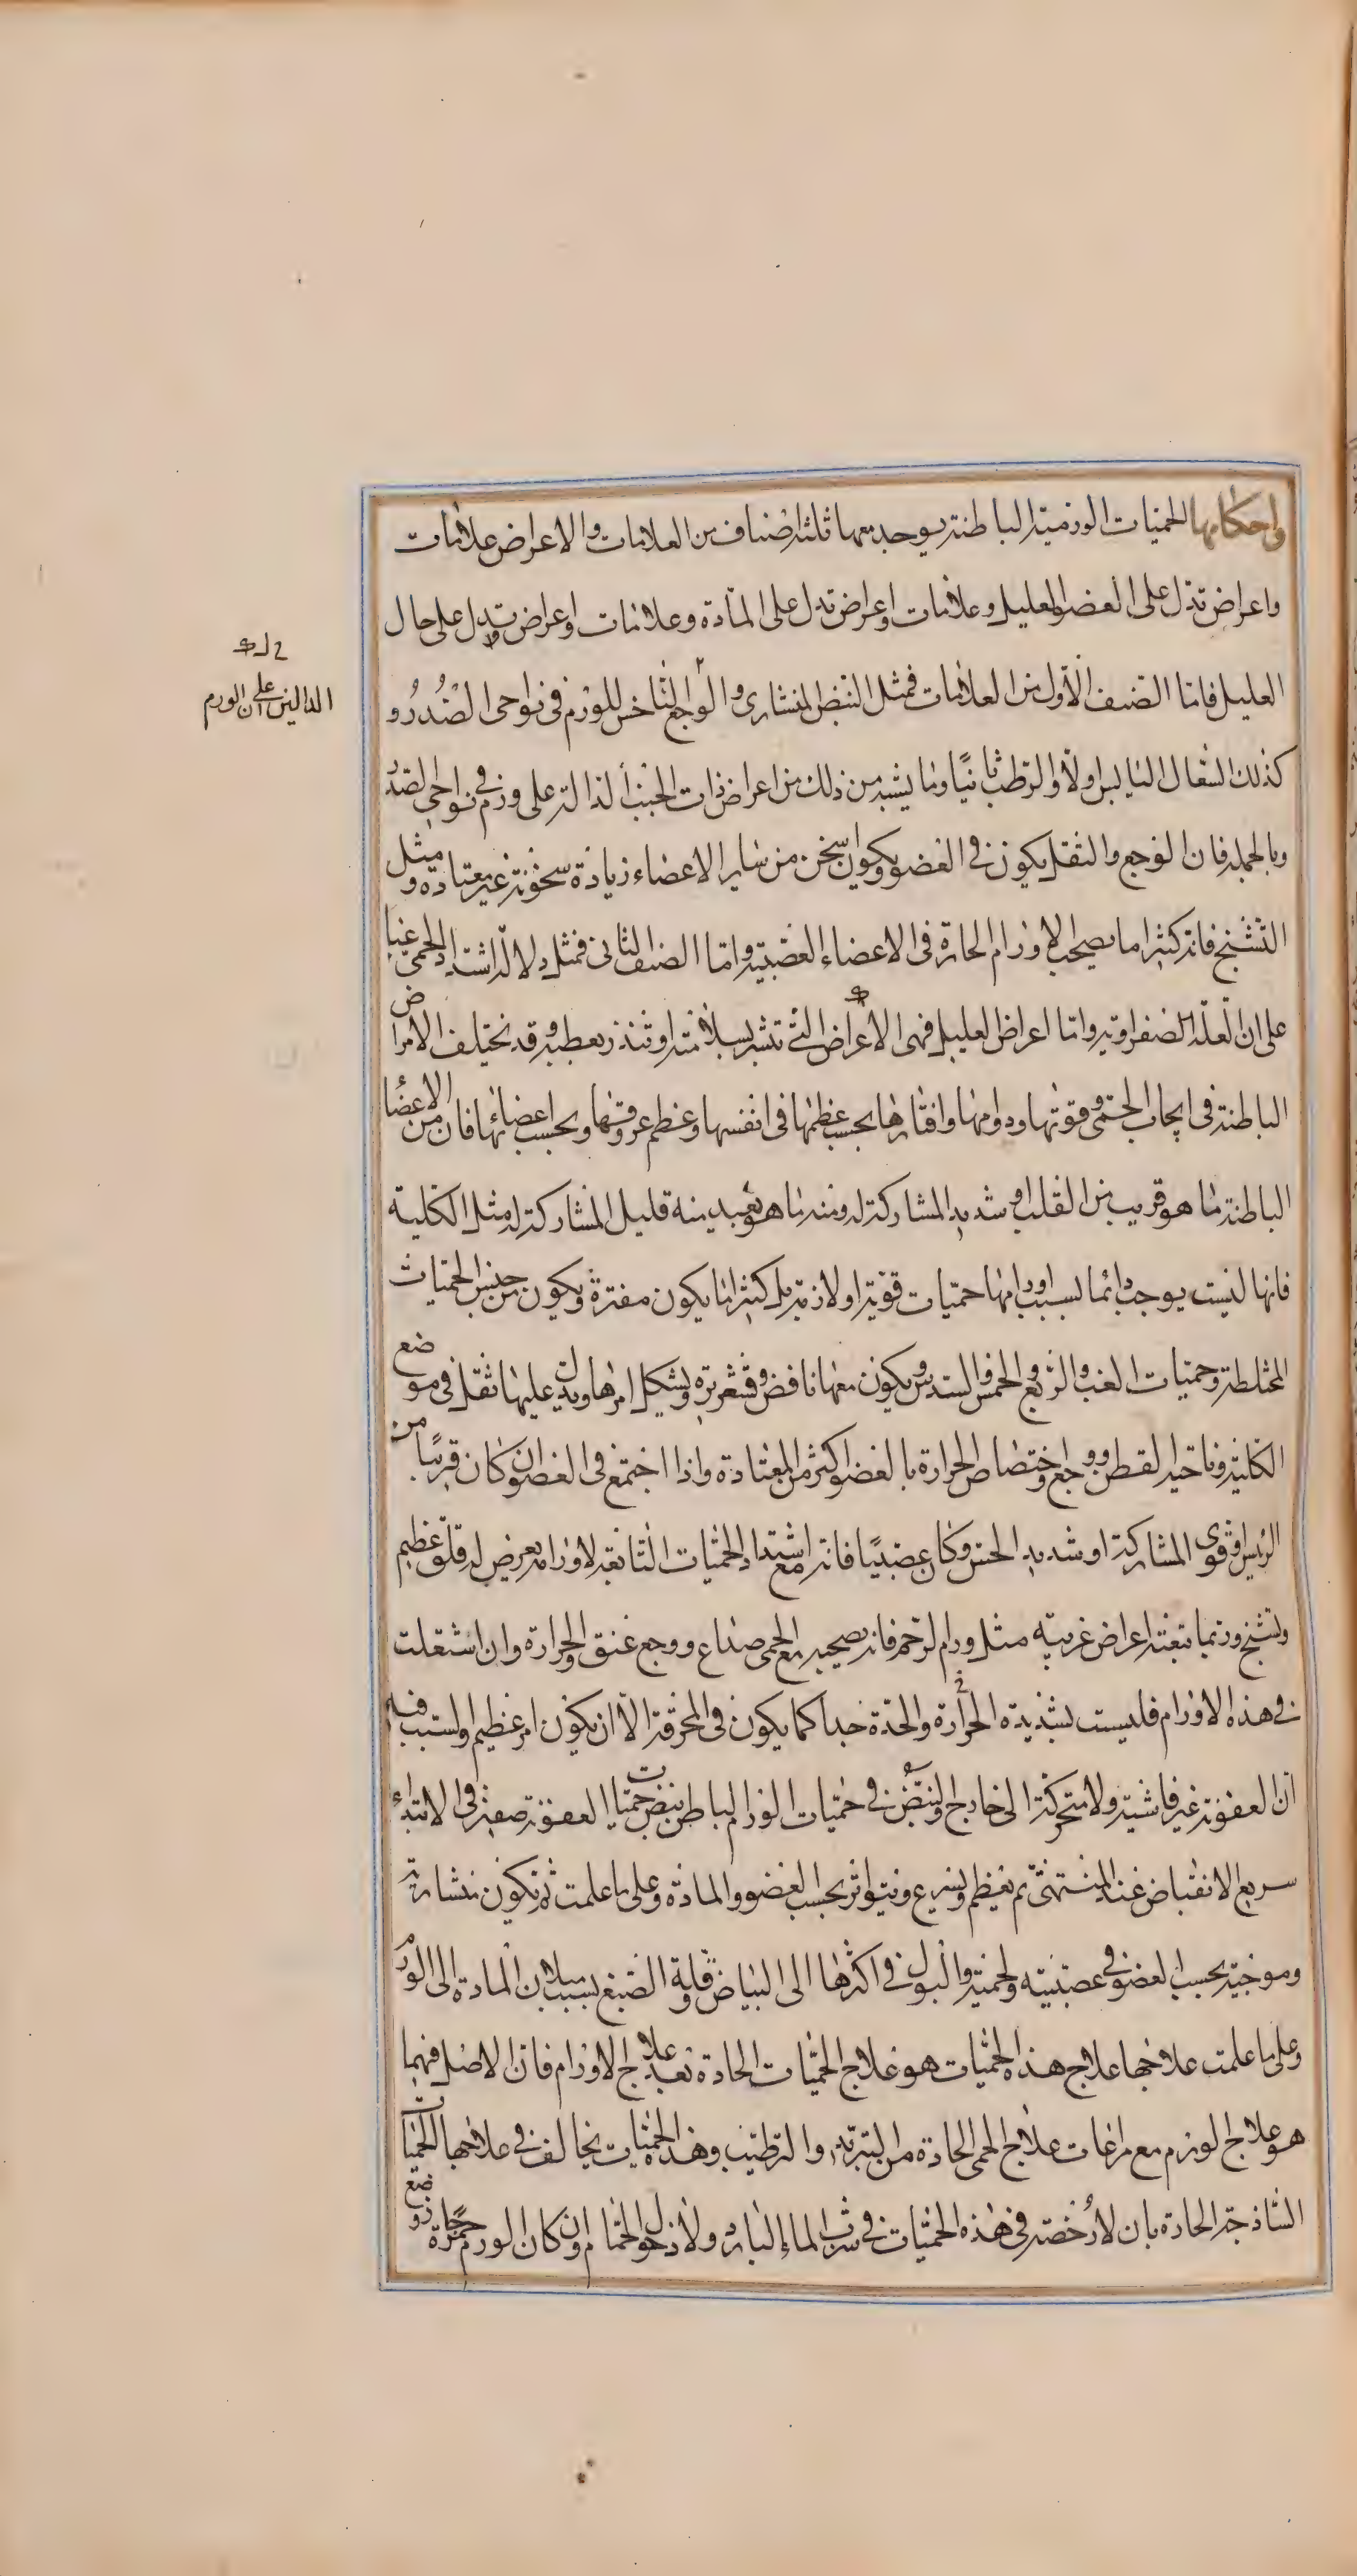 واحكامها الحميات الورمية الباطنة يوجد معها ثلثة اصناف من العلامات والاعراض علامات
واعراض تدل على العضو العليل وعلامات واعراض تدل على المادة وعلامات واعراض تدل على حال
العليل فاما الصنف الاول من العلامات فمثل النبض المنشارى والوجع الناخس للورم فى نواحى الصدر و
كذلك السعال اليابس اولا والرطب ثانيا وما يشبه من ذلك من اعراض ذات الجنب الدالة على ورم فى نواحى الصدر
وبالجملة فان الوجع والثقل يكون فى العضو ويكون اسخن من ساير الاعضاء زيادة سخونة غير معتادة ومثل
التشنج فانه كثيرا ما يصحب الاورام الحارة فى الاعضاء العصبية واما الصنف الثانى فمثل دلالة اشتداد الحمى غبا
على ان العلة صفراوية واما اعراض العليل فهى الاعراض التى تبشر بسلامته او تنذر بعطبه وقد يختلف الامراض
الباطنة فى ايجاب الحمى وقوتها ودوامها وافتارها بحسب عظمها فى انفسها وعظم عروقها وبحسب اعضائها فان من الاعضا
الباطنة ما هو قريب من القلب او شديد المشاركة له ومنه ما هو بعيد منه قليل المشاركة له مثل الكلية
فانها ليست يوجب دائما بسبب اورامها حميات قوية او لازمة بل كثيرا ما يكون مفترة ويكون من جنس الحميات
المختلطة وحميات الغب والربع والخمس والسدس ويكون معها نافض وقشعريرة ويشكل امرها ويدل عليها ثقل فى موضع
الكلية وناحية القطن ووجع واختصاص الحرارة بالعضو اكثر من المعتادة واذا اجتمع فى العضو ان كان قريبا من
الرئيس او قوى المشاركة او شديد الحس وكان عصبيا فانه مع اشتداد الحميات التابعة لاورامه يعرض له قلق عظيم
وتشنج وربما تبعته اعراض غريبة مثل ورام الرحم فانه يصحبه مع الحمى صداع ووجع عنق والحرارة وان اشتعلت
فى هذه الاورام فليست بشديدة الحرارة والحدة جدا كما يكون فى المحرقة الا ان يكون امر عظيم والسبب فيه
ان العفونة غير فاشية ولا متحركة الى خارج والنبض فى حميات الورم الباطن نبض حميات العفونة صغير فى الابتداء
سريع الانقباض عند المنتهى ثم يعظم ويسرع ويتواتر بحسب العضو والمادة وعلى ما علمت ثم يكون منشارية
وموجية بحسب العضو فى عصبيته ولحميته والبول فى اكثرها الى البياض وقلة الصبغ بسبب ميلان المادة الى الورم
وعلى ما علمت علاجها علاج هذه الحميات هو علاج الحميات الحادة بعد علاج الاورام فان الاصل فيهما
هو علاج الورم مع مراعات علاج الحمى الحادة من التبريد والترطيب وهذه الحميات يخالف فى علاجها الحميات
الساذجة الحادة بان لا رخصة فى هذه الحميات فى شرب الماء البارد ولا دخول الحمام وان كان الورم حمرة جاز وضع
الدالين على ان الورم